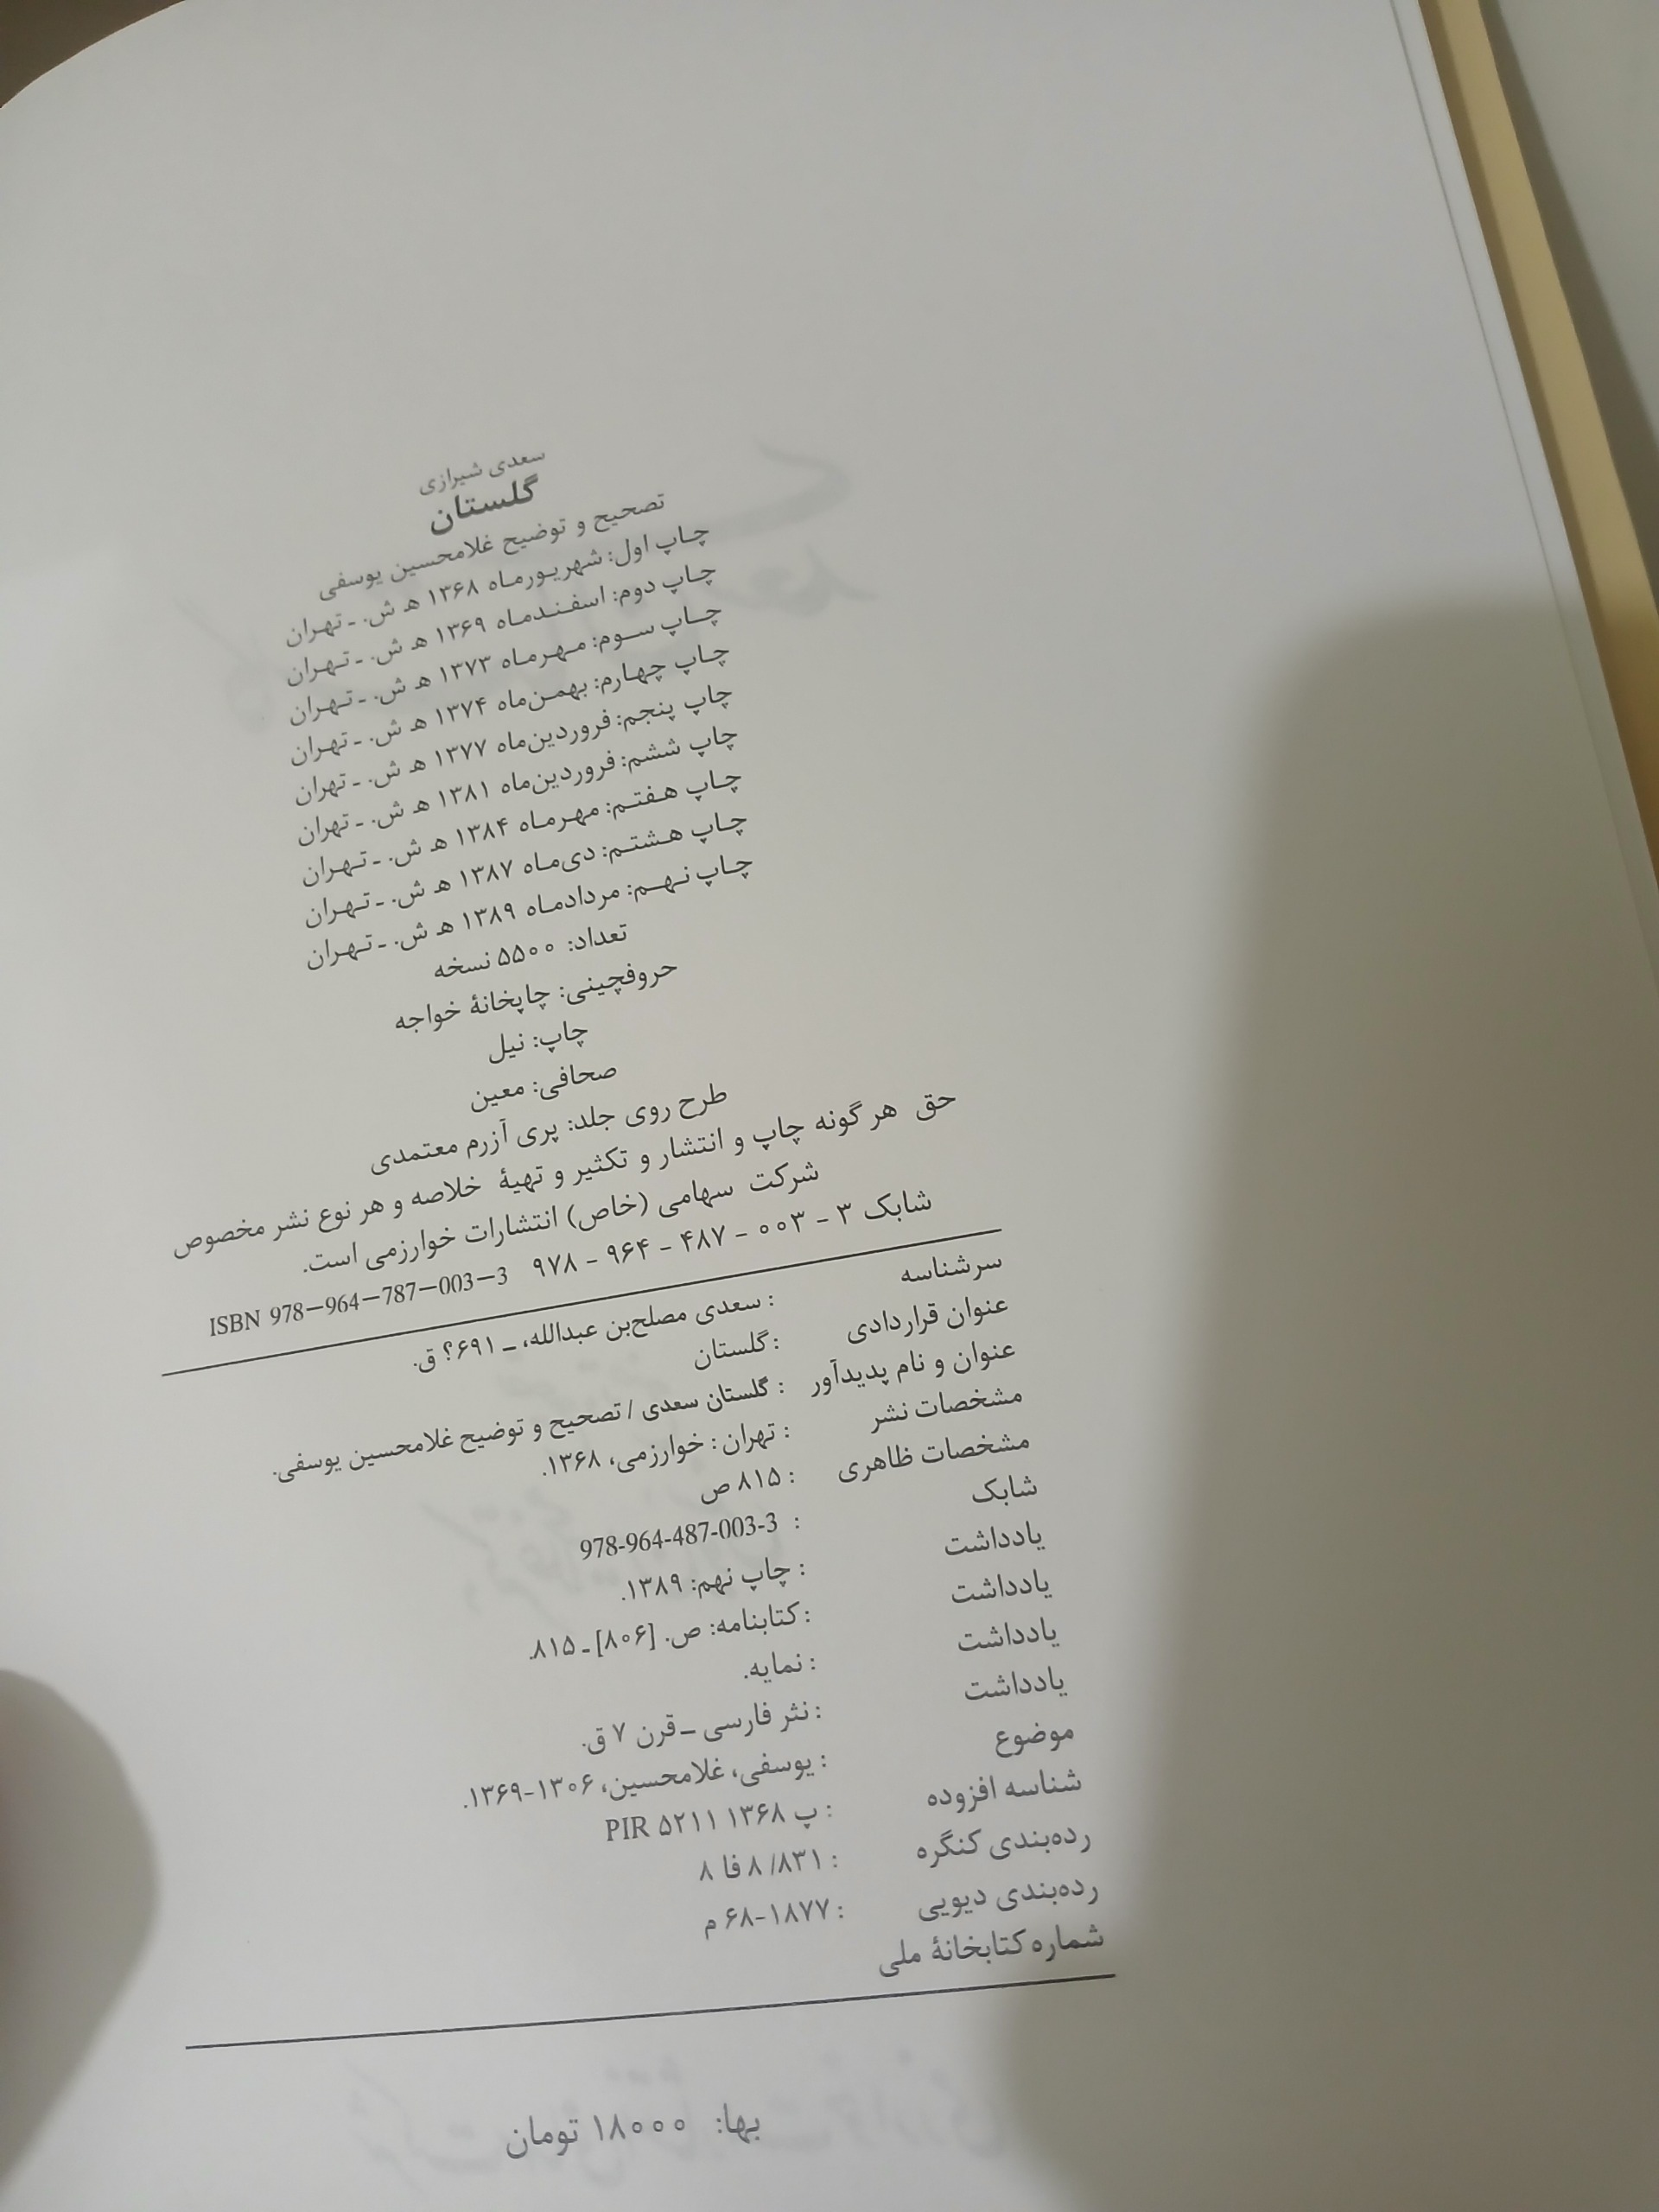 سعدی شیرازی
گلستان
تصحیح و توضیح غلامحسین یوسفی
چاپ اول: شهریورماه ۱۳۶۸ ه‍ ش. ـ تهران
چاپ دوم: اسفندماه ۱۳۶۹ ه‍ ش. ـ تهران
چاپ سوم: مهرماه ۱۳۷۳ ه‍ ش. ـ تهران
چاپ چهارم: بهمن‌ماه ۱۳۷۴ ه‍ ش. ـ تهران
چاپ پنجم: فروردین‌ماه ۱۳۷۷ ه‍ ش. ـ تهران
چاپ ششم: فروردین‌ماه ۱۳۸۱ ه‍ ش. ـ تهران
چاپ هفتم: مهرماه ۱۳۸۴ ه‍ ش. ـ تهران
چاپ هشتم: دی‌ماه ۱۳۸۷ ه‍ ش. ـ تهران
چاپ نهم: مردادماه ۱۳۸۹ ه‍ ش. ـ تهران
تعداد: ۵۵۰۰ نسخه
حروفچینی: چاپخانهٔ خواجه
چاپ: نیل
صحافی: معین
طرح روی جلد: پری آزرم معتمدی
حق هر گونه چاپ و انتشار و تکثیر و تهیهٔ خلاصه و هر نوع نشر مخصوص
شرکت سهامی (خاص) انتشارات خوارزمی است.
شابک ۳ - ۰۰۳ - ۴۸۷ - ۹۶۴ - ۹۷۸ ISBN 978–964–787–003–3
سرشناسه : سعدی مصلح‌بن عبدالله، ـ ۶۹۱؟ ق.
عنوان قراردادی : گلستان
عنوان و نام پدیدآور : گلستان سعدی / تصحیح و توضیح غلامحسین یوسفی.
مشخصات نشر : تهران: خوارزمی، ۱۳۶۸.
مشخصات ظاهری : ۸۱۵ ص
شابک : 978-964-487-003-3
یادداشت : چاپ نهم: ۱۳۸۹.
یادداشت : کتابنامه: ص. [۸۰۶] ـ ۸۱۵.
یادداشت : نمایه.
یادداشت : نثر فارسی ـ قرن ۷ ق.
موضوع : یوسفی، غلامحسین، ۱۳۰۶-۱۳۶۹.
شناسه افزوده : پ ۱۳۶۸ ۵۲۱۱ PIR
رده‌بندی کنگره : ۸۳۱/ ۸ فا ۸
رده‌بندی دیویی : ۱۸۷۷-۶۸ م
شماره کتابخانهٔ ملی
بها: ۱۸۰۰۰ تومان